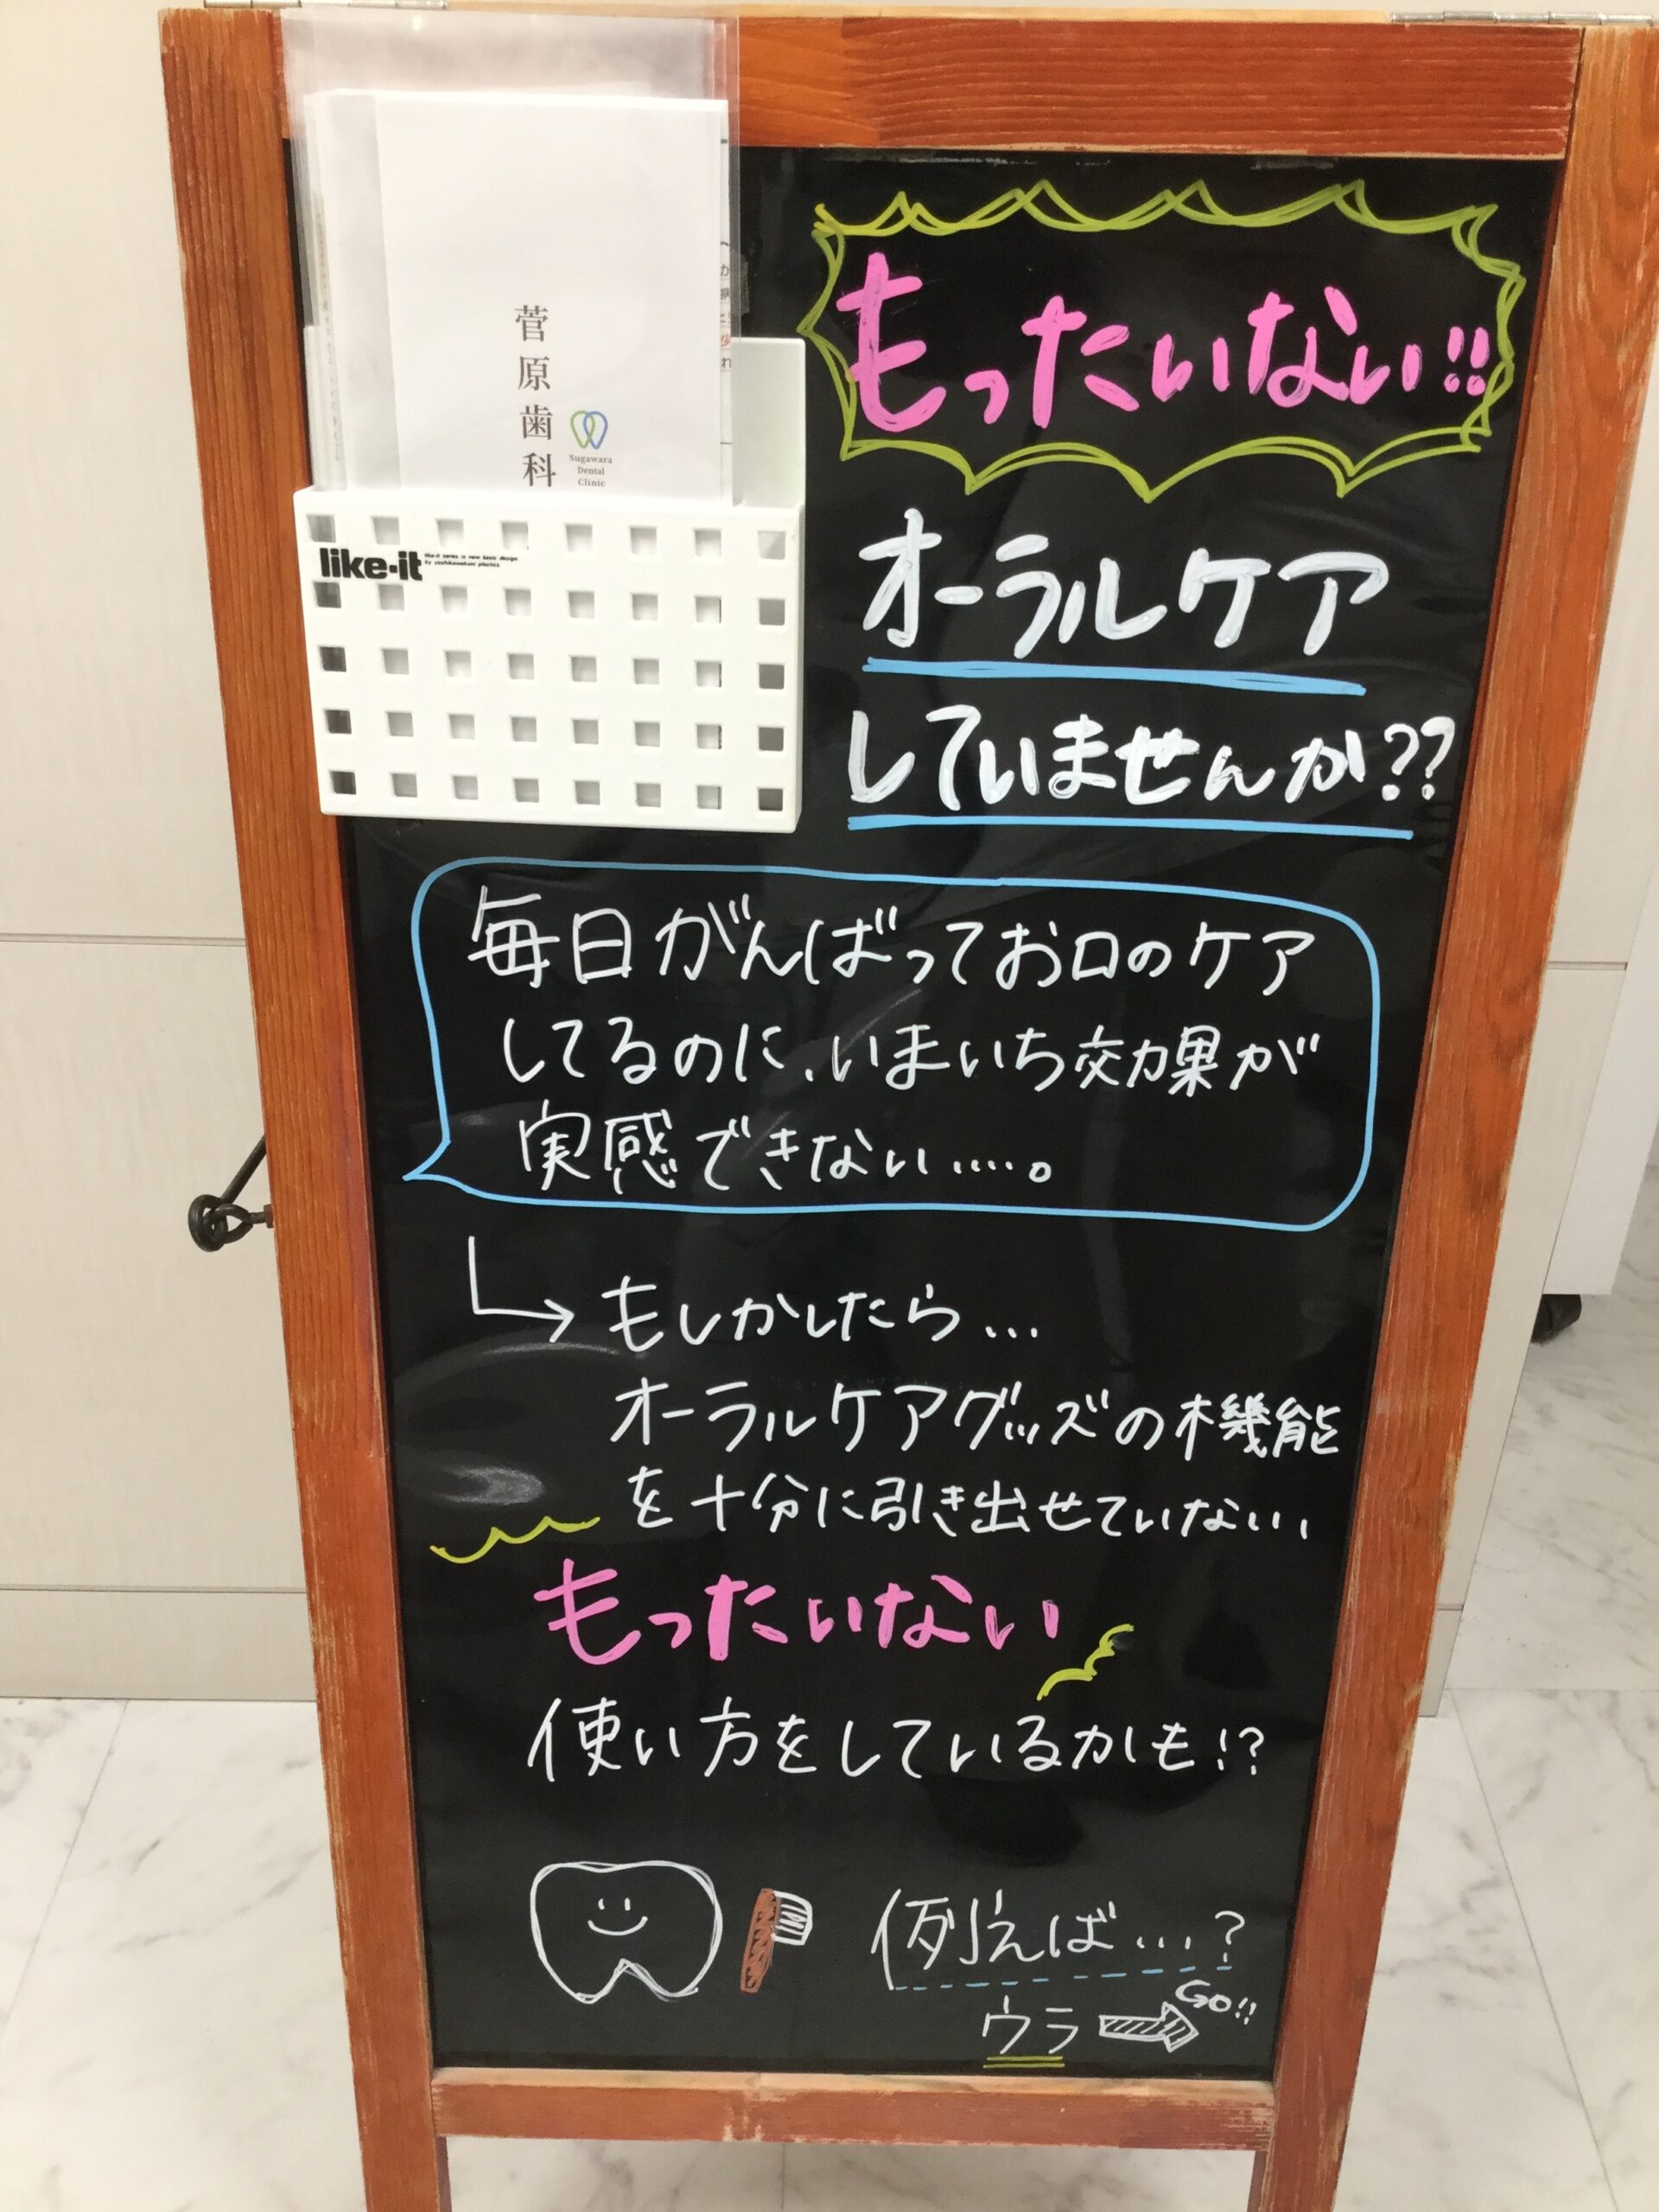 菅原歯科
Sugawara
Dental
Clinic
like-it
like-it series is new basic design
もったいない!!
オーラルケア
していませんか??
毎日がんばってお口のケア
してるのに、いまいち効果が
実感できない.....。
もしかしたら...
オーラルケアグッズの機能
を十分に引き出せていない、
もったいない
使い方をしているかも!?
例えば...?
ウラ
GO!!